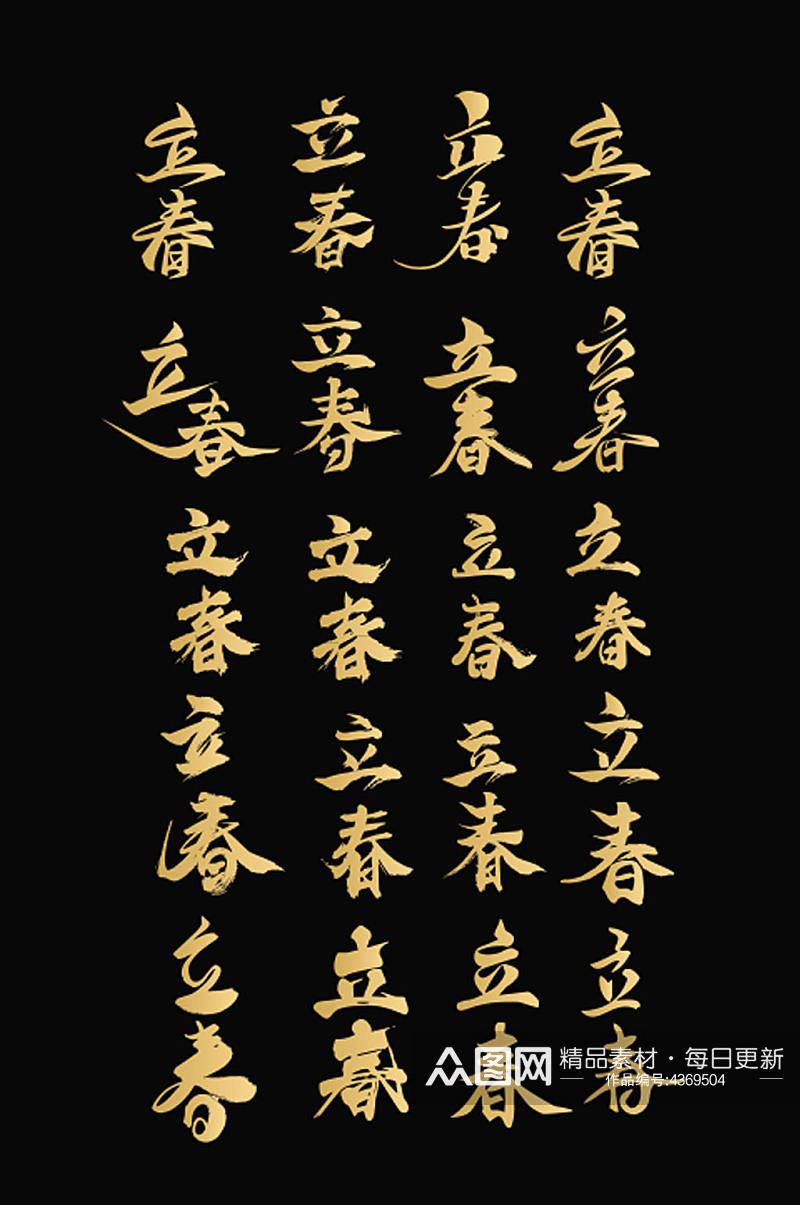 立春 立春 立春 立春
立春 立春 立春 立春
立春 立春 立春 立春
立春 立春 立春 立春
立春 立春 立春 立春
众图网 精品素材·每日更新
作品编号:4369504